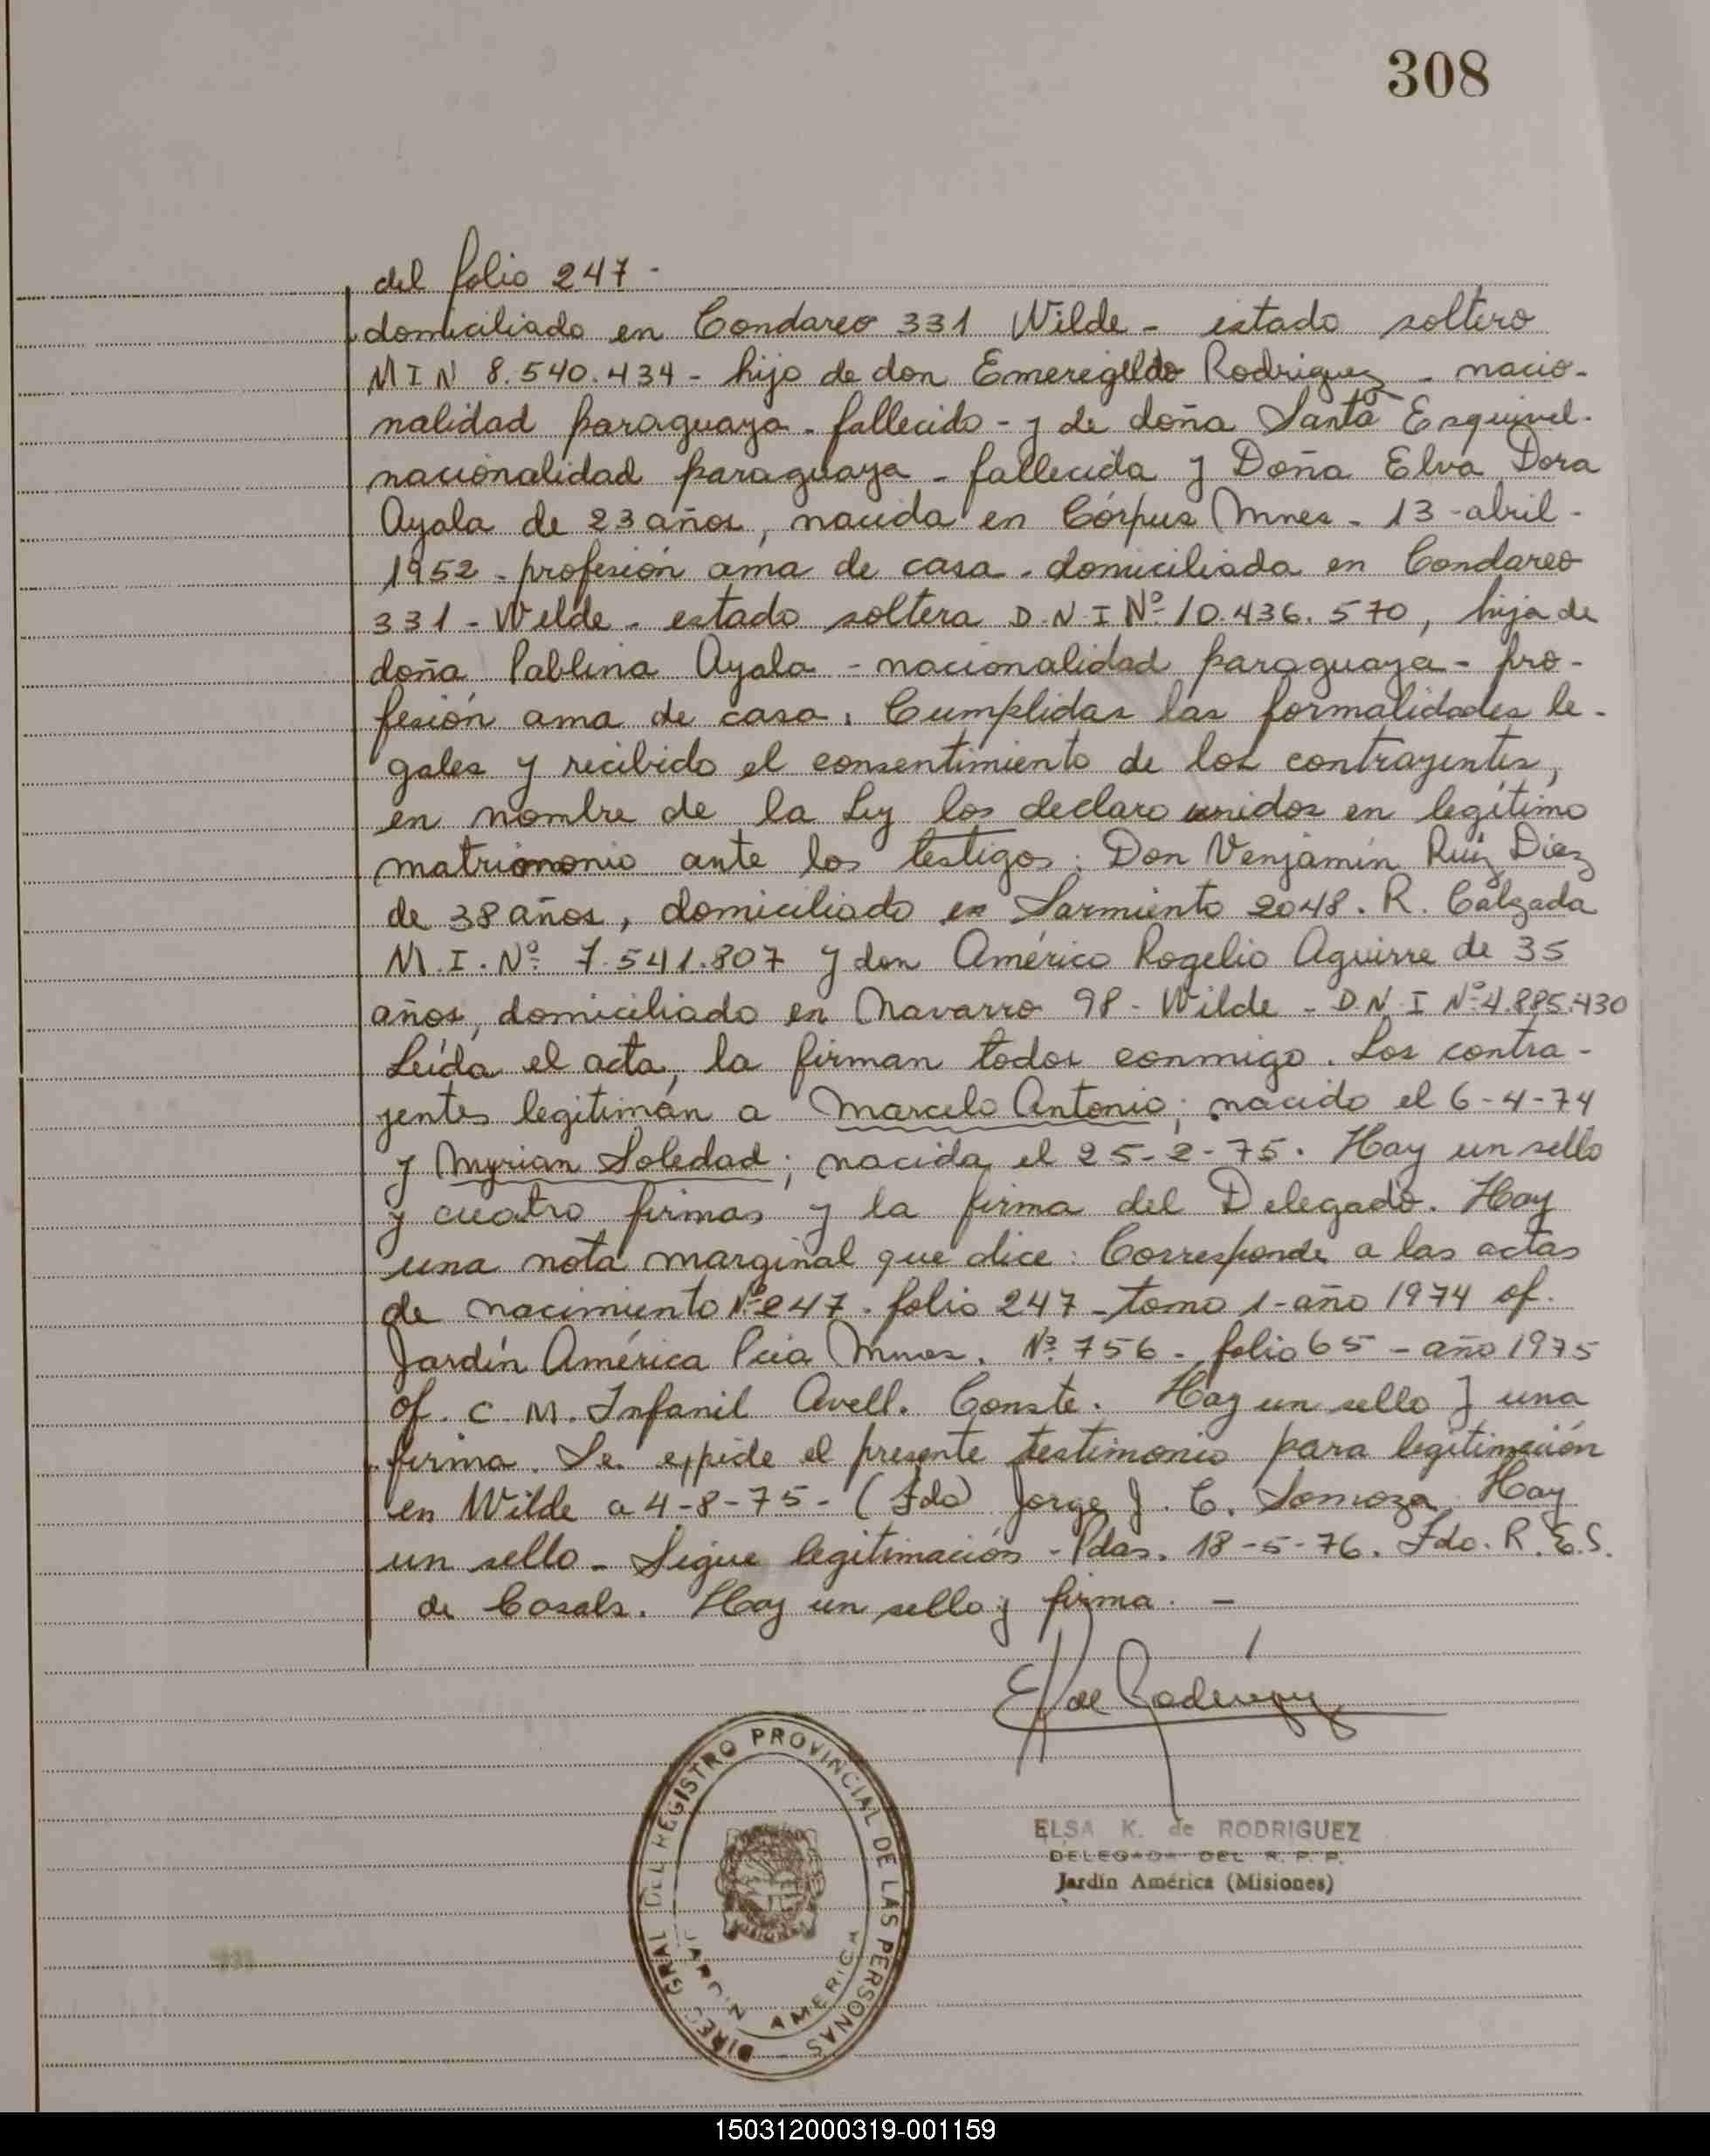 308
del folio 247 -
domiciliado en Condarco 331 Wilde - estado soltero
M I N 8.540.434 - hijo de don Emeregildo Rodriguez - nacio-
nalidad paraguaya - fallecido - y de doña Santa Esquivel -
nacionalidad paraguaya - fallecida y Doña Elva Dora
Ayala de 23 años, nacida en Córpus Mnes - 13 - abril -
1952 - profesión ama de casa - domiciliada en Condarco
331 - Wilde - estado soltera D.N.I Nº 10.436.570, hija de
doña Pablina Ayala - nacionalidad paraguaya - pro-
fesión ama de casa. Cumplidas las formalidades le-
gales y recibido el consentimiento de los contrayentes,
en nombre de la Ley los declaro unidos en legítimo
matrimonio ante los testigos: Don Venjamín Ruiz Diez
de 38 años, domiciliado en Sarmiento 2048. R. Calzada
M.I. Nº 7.541.807 y don Américo Rogelio Aguirre de 35
años, domiciliado en Navarro 98 - Wilde - D.N.I Nº 4.885.430
Leída el acta, la firman todos conmigo. Los contra-
yentes legitiman a Marcelo Antonio; nacido el 6-4-74
y Myrian Soledad; nacida el 25-2-75. Hay un sello
y cuatro firmas y la firma del Delegado. Hay
una nota marginal que dice: Corresponde a las actas
de nacimiento Nº 247 - folio 247 - tomo 1 - año 1974 of.
Jardín América Pcia Mnes. Nº 756 - folio 65 - año 1975
of. C. M. Infanil Avell. Conste. Hay un sello y una
firma. Se expide el presente testimonio para legitimación
en Wilde a 4-8-75 - (Fdo) Jorge J. C. Somoza. Hay
un sello - Sigue legitimación - Pdas. 18-5-76. Fdo. R. E. S.
de Casals. Hay un sello y firma. -
EK de Rodriguez
ELSA K. de RODRIGUEZ
DELEGADA DEL R. P. P.
Jardín América (Misiones)
DIREC. GRAL DEL REGISTRO PROVINCIAL DE LAS PERSONAS
JARDIN AMERICA
150312000319-001159